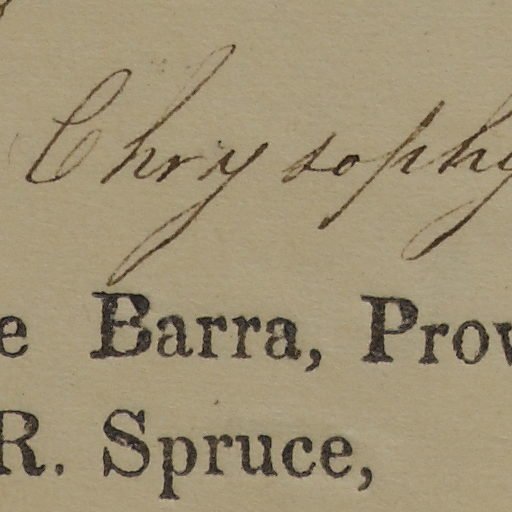 Chrysophy
e Barra, Prov
R. Spruce,